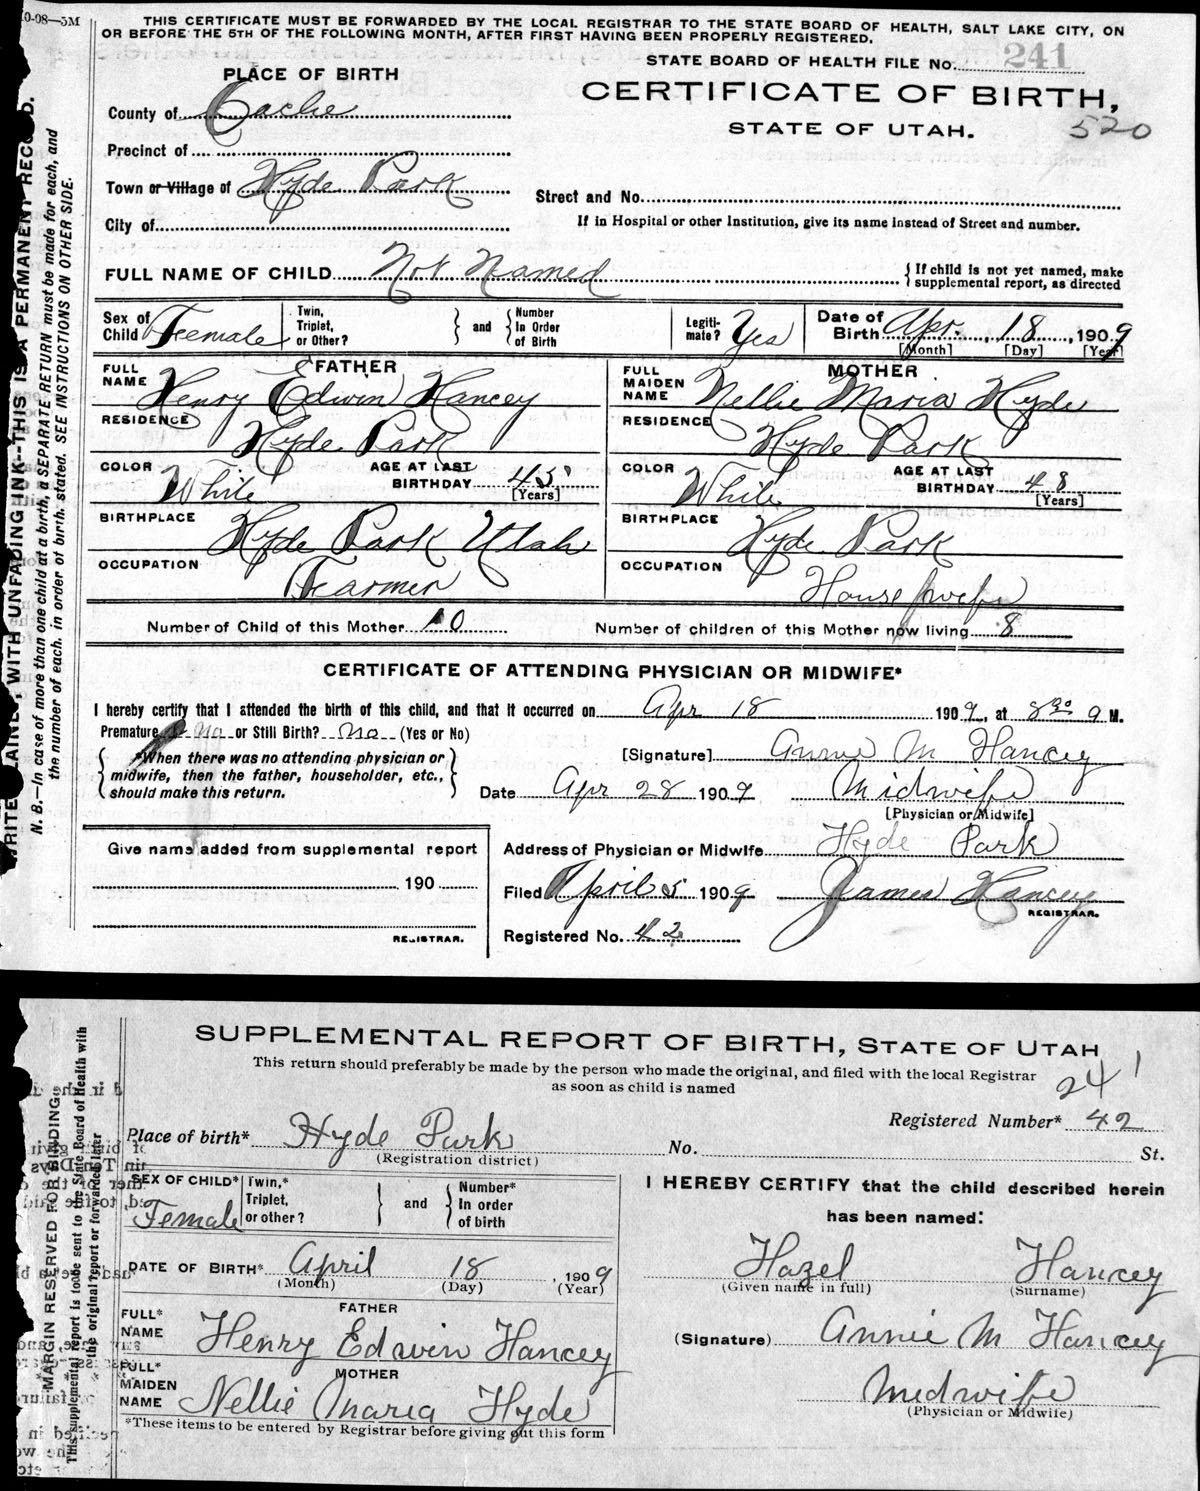 10-08—5M
THIS CERTIFICATE MUST BE FORWARDED BY THE LOCAL REGISTRAR TO THE STATE BOARD OF HEALTH, SALT LAKE CITY, ON
OR BEFORE THE 5TH OF THE FOLLOWING MONTH, AFTER FIRST HAVING BEEN PROPERLY REGISTERED.
STATE BOARD OF HEALTH FILE No. 241
PLACE OF BIRTH
CERTIFICATE OF BIRTH,
STATE OF UTAH.
520
County of Cache
Precinct of
Town or Village of Hyde Park
Street and No.
City of
If in Hospital or other Institution, give its name instead of Street and number.
FULL NAME OF CHILD Not Named
{ If child is not yet named, make
supplemental report, as directed
Sex of Child Female
Twin, Triplet, or Other? } and { Number In Order of Birth
Legiti-mate? Yes
Date of Birth Apr. 18, 1909
[Month] [Day] [Year]
FATHER
FULL NAME Henry Edwin Hancey
RESIDENCE Hyde Park
COLOR White AGE AT LAST BIRTHDAY 45 [Years]
BIRTHPLACE Hyde Park Utah
OCCUPATION Farmer
MOTHER
FULL MAIDEN NAME Nellie Maria Hyde
RESIDENCE Hyde Park
COLOR White AGE AT LAST BIRTHDAY 48 [Years]
BIRTHPLACE Hyde Park
OCCUPATION House wife
Number of Child of this Mother 10 Number of children of this Mother now living 8
CERTIFICATE OF ATTENDING PHYSICIAN OR MIDWIFE*
I hereby certify that I attended the birth of this child, and that it occurred on Apr 18 1909, at 8 30 a M.
Premature No or Still Birth? No (Yes or No)
{ *When there was no attending physician or
midwife, then the father, householder, etc.,
should make this return. }
[Signature] Annie M Hancey
Date Apr 28 1909 Midwife
[Physician or Midwife]
Give name added from supplemental report
190
REGISTRAR.
Address of Physician or Midwife Hyde Park
Filed April 5 1909 James Hancey
REGISTRAR.
Registered No. 42
WRITE PLAINLY, WITH UNFADING INK--THIS IS A PERMANENT RECORD.
N. B.—In case of more than one child at a birth, a SEPARATE RETURN must be made for each, and
the number of each. in order of birth. stated. SEE INSTRUCTIONS ON OTHER SIDE.
SUPPLEMENTAL REPORT OF BIRTH, STATE OF UTAH
This return should preferably be made by the person who made the original, and filed with the local Registrar
as soon as child is named
241
Registered Number* 42
Place of birth* Hyde Park No. St.
(Registration district)
SEX OF CHILD* Female
Twin,* Triplet, or other? } and { Number* In order of birth
DATE OF BIRTH* April 18, 1909
(Month) (Day) (Year)
FATHER
FULL* NAME Henry Edwin Hancey
MOTHER
FULL* MAIDEN NAME Nellie Maria Hyde
*These items to be entered by Registrar before giving out this form
I HEREBY CERTIFY that the child described herein
has been named:
Hazel Hancey
(Given name in full) (Surname)
(Signature) Annie M Hancey
Midwife
(Physician or Midwife)
MARGIN RESERVED FOR BINDING.
This supplemental report is to be sent to the State Board of Health with
the original report or forwarded later